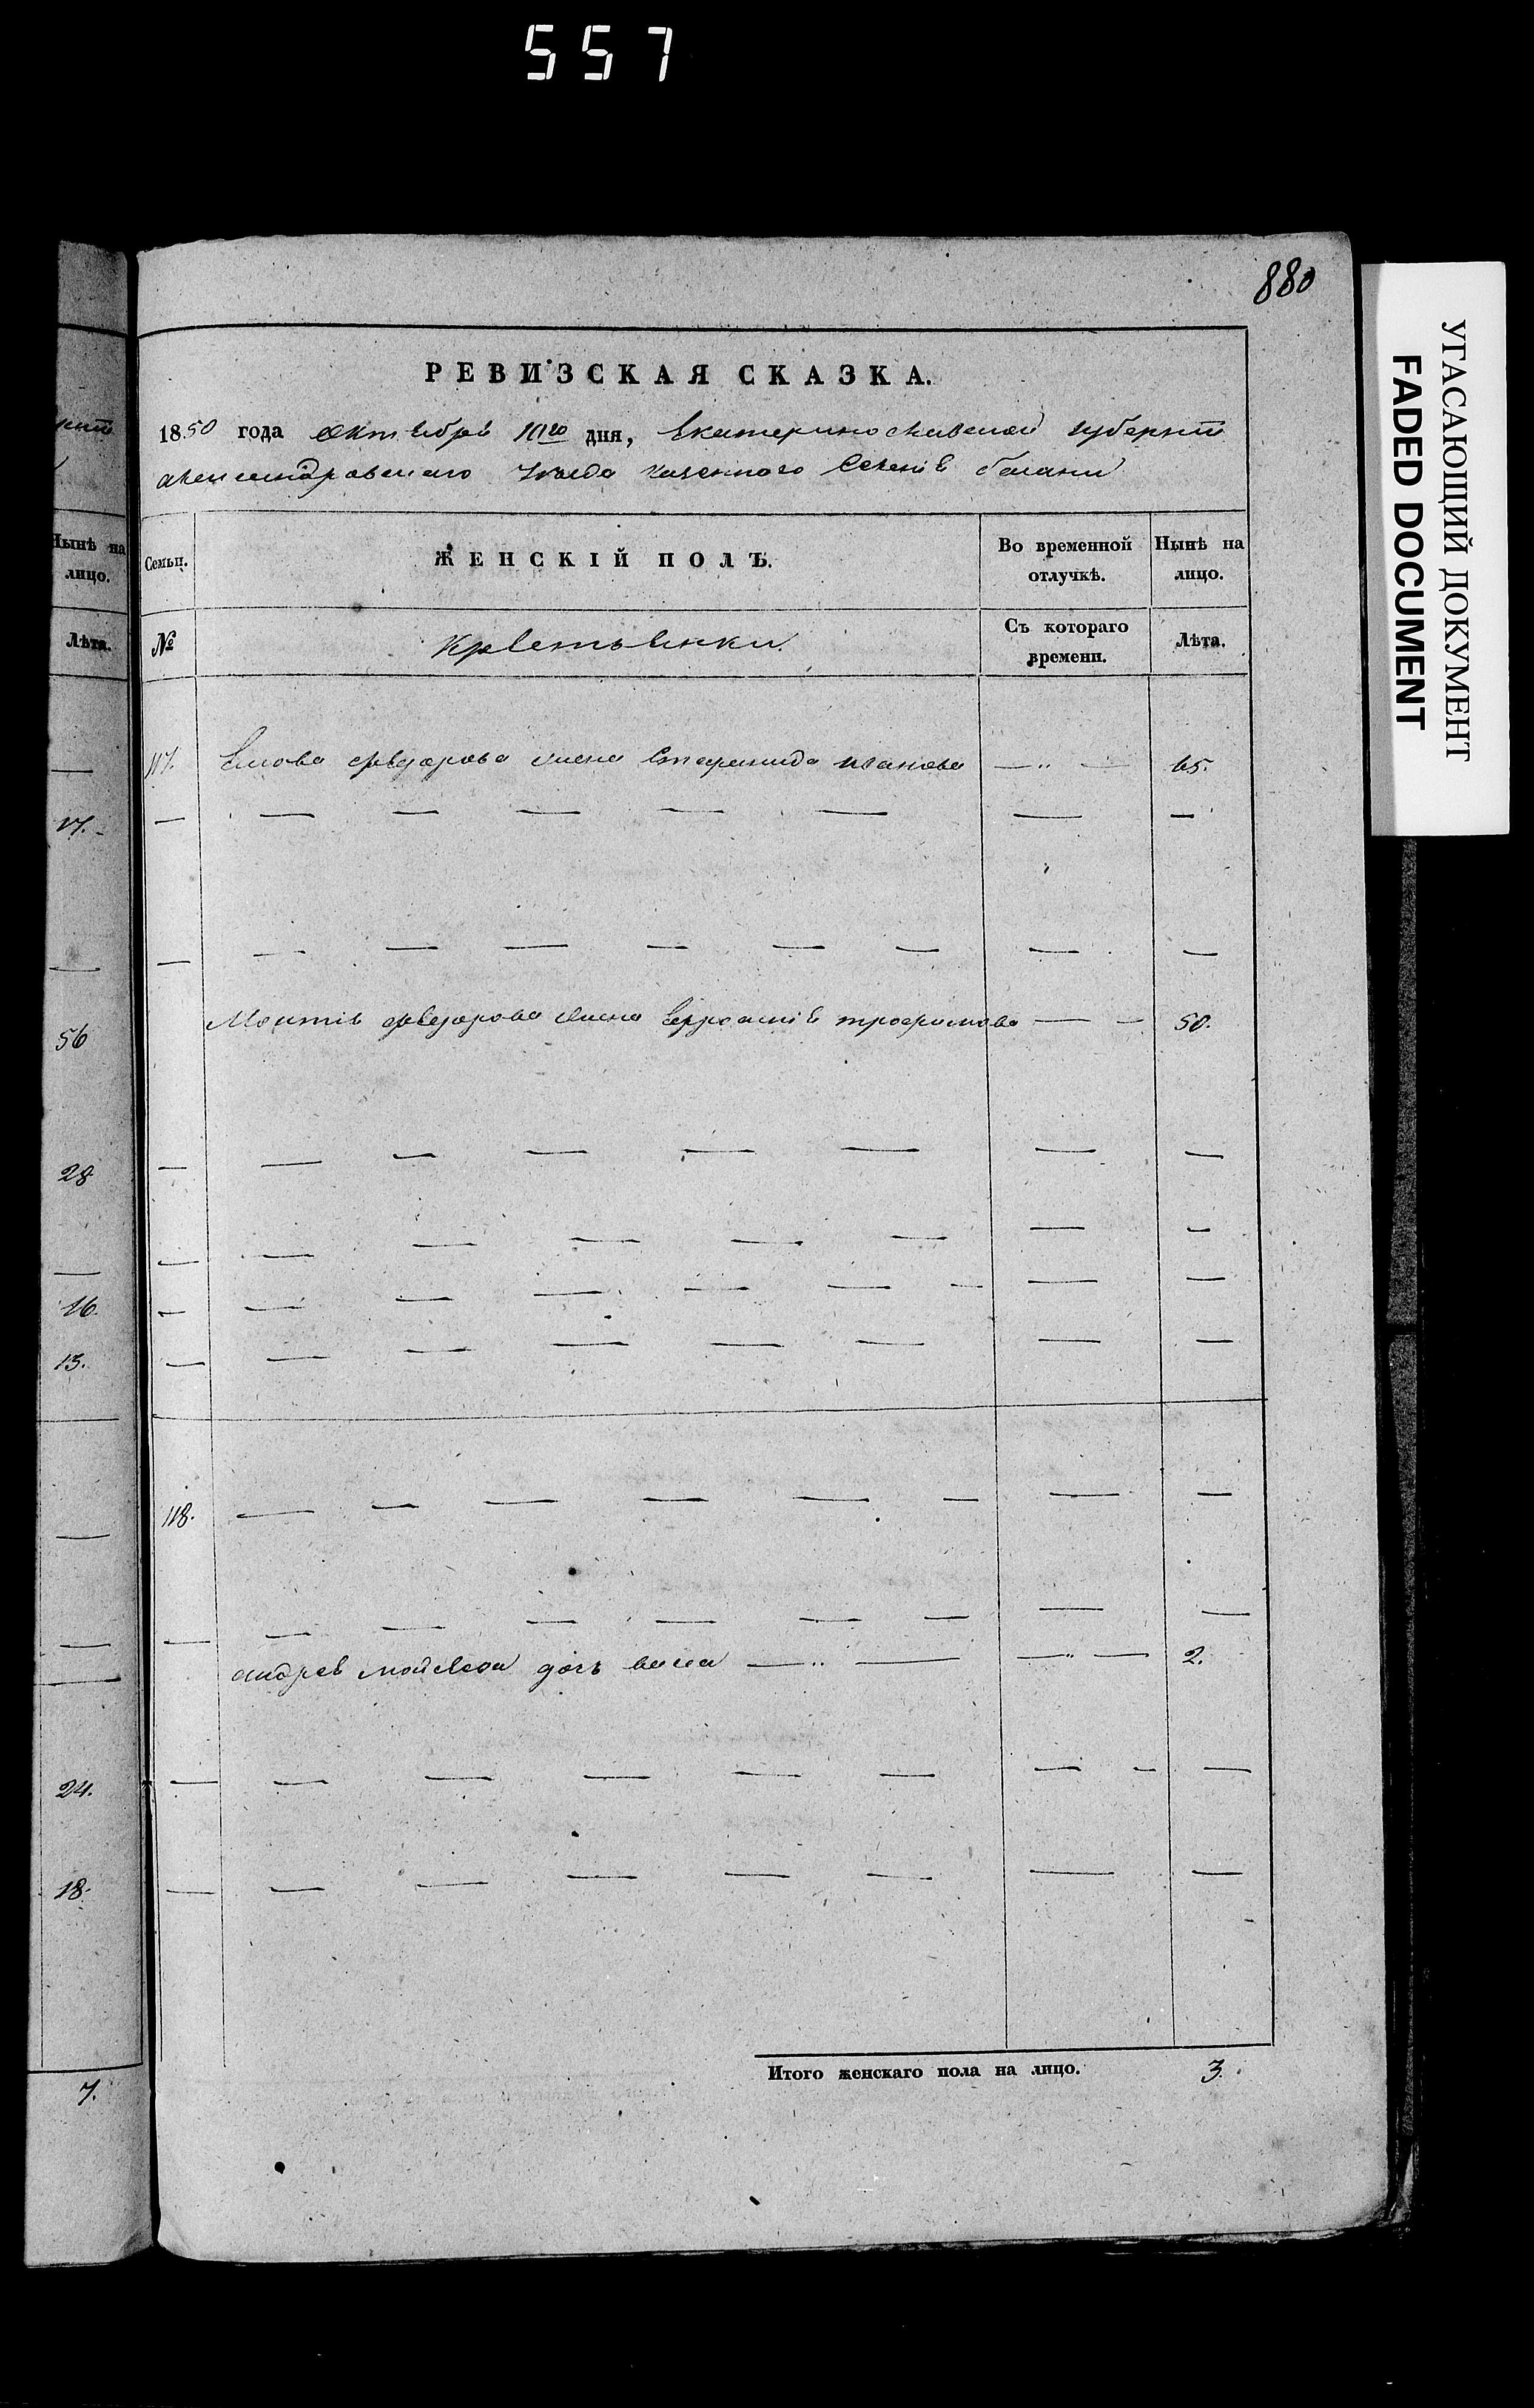 557
880
УГАСАЮЩИЙ ДОКУМЕНТ
FADED DOCUMENT
РЕВИЗСКАЯ СКАЗКА.
1850 года Октября 10го дня, Екатеринославской губерніи
александровскаго уѣзда казенного Селенія
Нынѣ на лицо.
Семьи. ЖЕНСКІЙ ПОЛЪ. Во временной отлучкѣ. Нынѣ на лицо.
Лѣта.
№ Крестьянки. Съ котораго времени. Лѣта.
117. федорова жена Степанида иванова — " — 65.
17.
56
федорова жена трофимова — — 50.
28
16.
13.
118.
андрея дочь — " — — " — 2.
24.
18.
Итого женскаго пола на лицо. 3.
7.